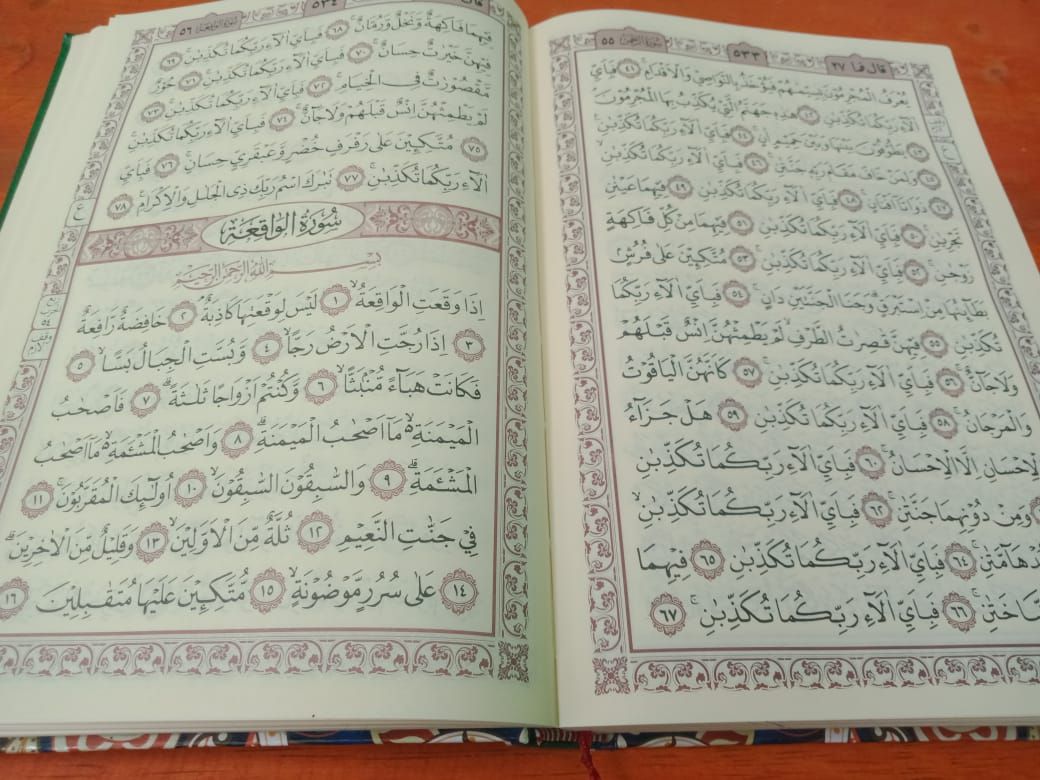 قال فما ٢٧
٥٣٣
سورة الرحمن ٥٥
يُعْرَفُ الْمُجْرِمُوْنَ بِسِيْمٰهُمْ فَيُؤْخَذُ بِالنَّوَاصِيْ وَالْاَقْدَامِۚ ٤١ فَبِاَيِّ
اٰلَاۤءِ رَبِّكُمَا تُكَذِّبٰنِۚ ٤٢ هٰذِهٖ جَهَنَّمُ الَّتِيْ يُكَذِّبُ بِهَا الْمُجْرِمُوْنَۘ
٤٣ يَطُوْفُوْنَ بَيْنَهَا وَبَيْنَ حَمِيْمٍ اٰنٍۚ ٤٤ فَبِاَيِّ اٰلَاۤءِ رَبِّكُمَا تُكَذِّبٰنِ
٤٥ وَلِمَنْ خَافَ مَقَامَ رَبِّهٖ جَنَّتٰنِۚ ٤٦ فَبِاَيِّ اٰلَاۤءِ رَبِّكُمَا تُكَذِّبٰنِۙ
٤٧ ذَوَاتَآ اَفْنَانٍۚ ٤٨ فَبِاَيِّ اٰلَاۤءِ رَبِّكُمَا تُكَذِّبٰنِ ٤٩ فِيْهِمَا عَيْنٰنِ
تَجْرِيٰنِۚ ٥٠ فَبِاَيِّ اٰلَاۤءِ رَبِّكُمَا تُكَذِّبٰنِ ٥١ فِيْهِمَا مِنْ كُلِّ فَاكِهَةٍ
زَوْجٰنِۚ ٥٢ فَبِاَيِّ اٰلَاۤءِ رَبِّكُمَا تُكَذِّبٰنِۚ ٥٣ مُتَّكِـِٕيْنَ عَلٰى فُرُشٍۢ
بَطَاۤىِٕنُهَا مِنْ اِسْتَبْرَقٍۗ وَجَنَا الْجَنَّتَيْنِ دَانٍۚ ٥٤ فَبِاَيِّ اٰلَاۤءِ رَبِّكُمَا
تُكَذِّبٰنِ ٥٥ فِيْهِنَّ قٰصِرٰتُ الطَّرْفِۙ لَمْ يَطْمِثْهُنَّ اِنْسٌ قَبْلَهُمْ
وَلَا جَاۤنٌّۚ ٥٦ فَبِاَيِّ اٰلَاۤءِ رَبِّكُمَا تُكَذِّبٰنِۚ ٥٧ كَاَنَّهُنَّ الْيَاقُوْتُ
وَالْمَرْجَانُۚ ٥٨ فَبِاَيِّ اٰلَاۤءِ رَبِّكُمَا تُكَذِّبٰنِ ٥٩ هَلْ جَزَاۤءُ
الْاِحْسَانِ اِلَّا الْاِحْسَانُۚ ٦٠ فَبِاَيِّ اٰلَاۤءِ رَبِّكُمَا تُكَذِّبٰنِ
وَمِنْ دُوْنِهِمَا جَنَّتٰنِۚ ٦٢ فَبِاَيِّ اٰلَاۤءِ رَبِّكُمَا تُكَذِّبٰنِۙ
٦٤ فَبِاَيِّ اٰلَاۤءِ رَبِّكُمَا تُكَذِّبٰنِۚ ٦٥ فِيْهِمَا
٦٦ فَبِاَيِّ اٰلَاۤءِ رَبِّكُمَا تُكَذِّبٰنِۚ ٦٧
٥٣٤
سورة الواقعة ٥٦
فِيْهِمَا فَاكِهَةٌ وَّنَخْلٌ وَّرُمَّانٌۚ ٦٨ فَبِاَيِّ اٰلَاۤءِ رَبِّكُمَا تُكَذِّبٰنِۚ ٦٩
فِيْهِنَّ خَيْرٰتٌ حِسَانٌۚ ٧٠ فَبِاَيِّ اٰلَاۤءِ رَبِّكُمَا تُكَذِّبٰنِۚ ٧١ حُوْرٌ
مَّقْصُوْرٰتٌ فِى الْخِيَامِۚ ٧٢ فَبِاَيِّ اٰلَاۤءِ رَبِّكُمَا تُكَذِّبٰنِۚ ٧٣
لَمْ يَطْمِثْهُنَّ اِنْسٌ قَبْلَهُمْ وَلَا جَاۤنٌّۚ ٧٤ فَبِاَيِّ اٰلَاۤءِ رَبِّكُمَا تُكَذِّبٰنِۚ
٧٥ مُتَّكِـِٕيْنَ عَلٰى رَفْرَفٍ خُضْرٍ وَّعَبْقَرِيٍّ حِسَانٍۚ ٧٦ فَبِاَيِّ
اٰلَاۤءِ رَبِّكُمَا تُكَذِّبٰنِۚ ٧٧ تَبٰرَكَ اسْمُ رَبِّكَ ذِى الْجَلٰلِ وَالْاِكْرَامِ ٧٨
سُوْرَةُ الْوَاقِعَةِ
بِسْمِ اللّٰهِ الرَّحْمٰنِ الرَّحِيْمِ
اِذَا وَقَعَتِ الْوَاقِعَةُۙ ١ لَيْسَ لِوَقْعَتِهَا كَاذِبَةٌۘ ٢ خَافِضَةٌ رَّافِعَةٌ
٣ اِذَا رُجَّتِ الْاَرْضُ رَجًّاۙ ٤ وَّبُسَّتِ الْجِبَالُ بَسًّاۙ ٥
فَكَانَتْ هَبَاۤءً مُّنْۢبَثًّاۙ ٦ وَّكُنْتُمْ اَزْوَاجًا ثَلٰثَةًۗ ٧ فَاَصْحٰبُ
الْمَيْمَنَةِ ەۙ مَآ اَصْحٰبُ الْمَيْمَنَةِۗ ٨ وَاَصْحٰبُ الْمَشْـَٔمَةِ ەۙ مَآ اَصْحٰبُ
الْمَشْـَٔمَةِۗ ٩ وَالسّٰبِقُوْنَ السّٰبِقُوْنَۙ ١٠ اُولٰۤىِٕكَ الْمُقَرَّبُوْنَۚ ١١
فِيْ جَنّٰتِ النَّعِيْمِ ١٢ ثُلَّةٌ مِّنَ الْاَوَّلِيْنَۙ ١٣ وَقَلِيْلٌ مِّنَ الْاٰخِرِيْنَۗ
١٤ عَلٰى سُرُرٍ مَّوْضُوْنَةٍۙ ١٥ مُّتَّكِـِٕيْنَ عَلَيْهَا مُتَقٰبِلِيْنَ ١٦